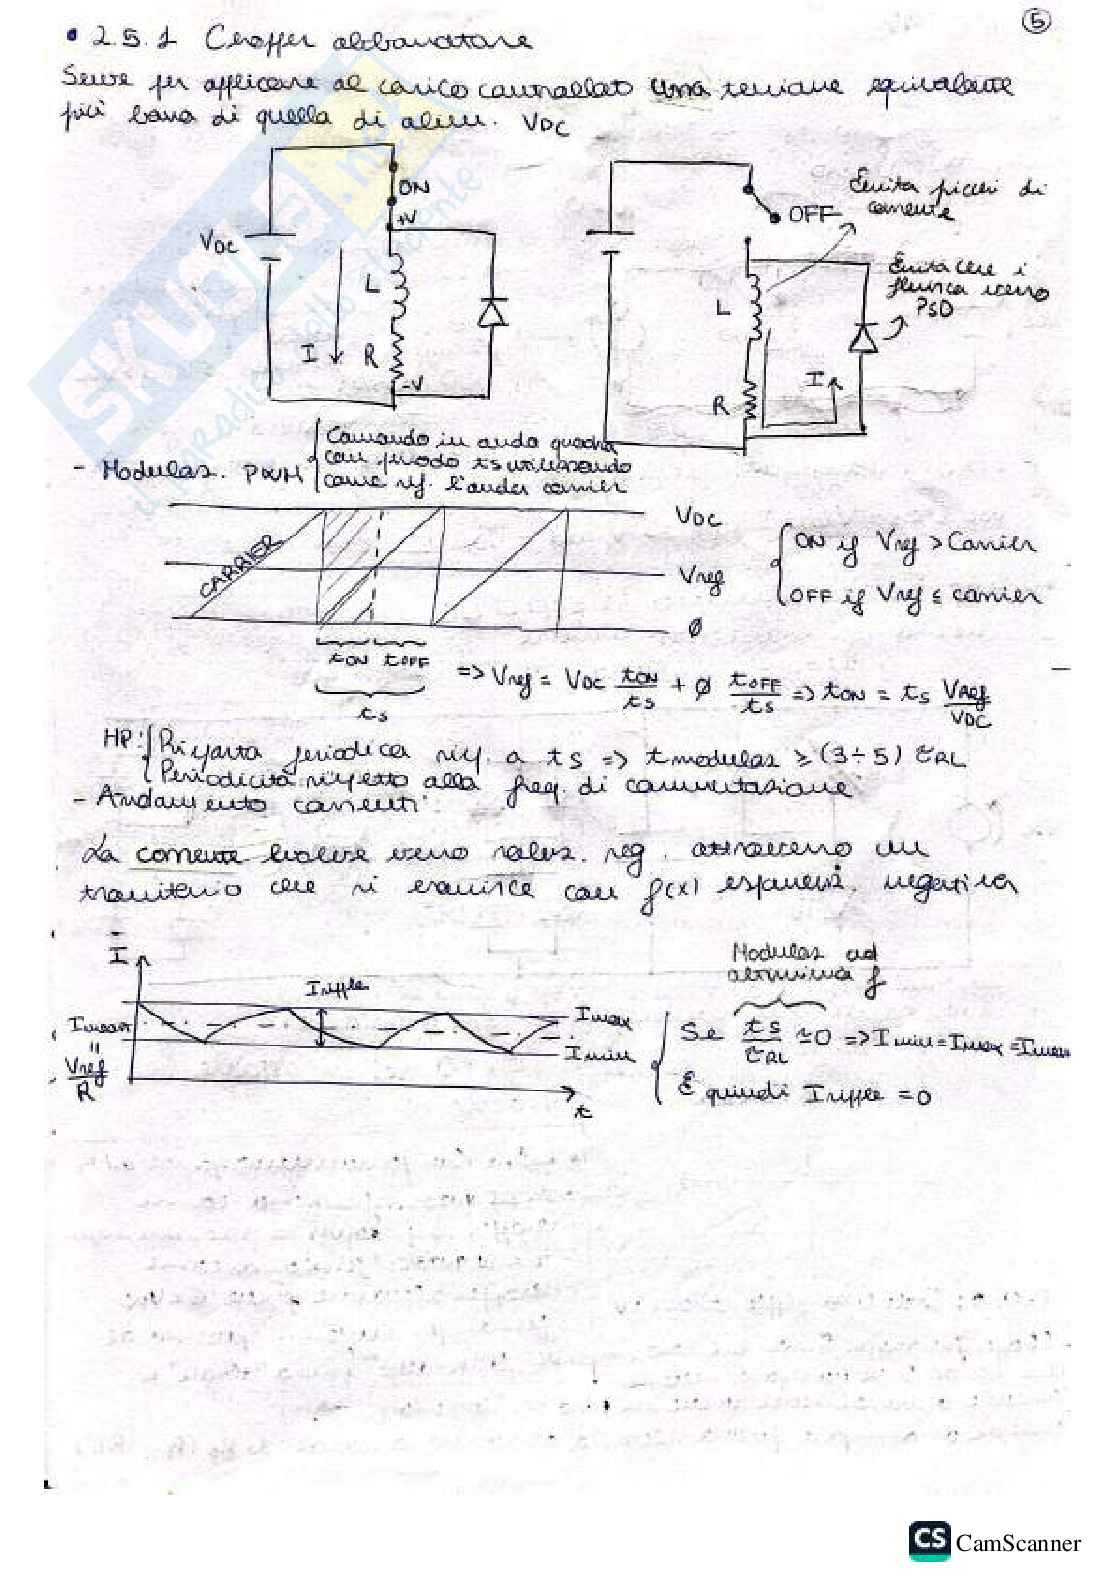 5
• 2.5.1 Chopper abbassatore
Serve per applicare al carico controllato una tensione equivalente
più bassa di quella di alim. VDC
ON
+V
VDC
L
I
R
-V
OFF
Evita picchi di
corrente
Evita che i
fluisca verso
PSD
L
I
R
- Modulaz. PWM
Comando in onda quadra
con periodo ts utilizzando
come rif. l'onda carrier
CARRIER
VDC
Vref
Ø
ON if Vref > Carrier
OFF if Vref ≤ carrier
tON tOFF
ts
=> Vref = VDC tON/ts + Ø tOFF/ts => tON = ts Vref/VDC
HP: Risposta periodica rif. a ts => t modulaz ≥ (3÷5) τRL
Periodicità rispetto alla freq. di commutazione
- Andamento correnti:
La corrente evolve verso valor. reg. attraverso un
transitorio che si esaurisce con f(x) esponenz. negativa
I
Iripple
Imean
=
Vref/R
Imax
Imin
t
Modulaz ad
altissima f
Se ts/τRL ≃ 0 => Imin = Imax = Imean
E quindi Iripple = 0
SKUOLA.net
il paradiso dello studente
CS CamScanner